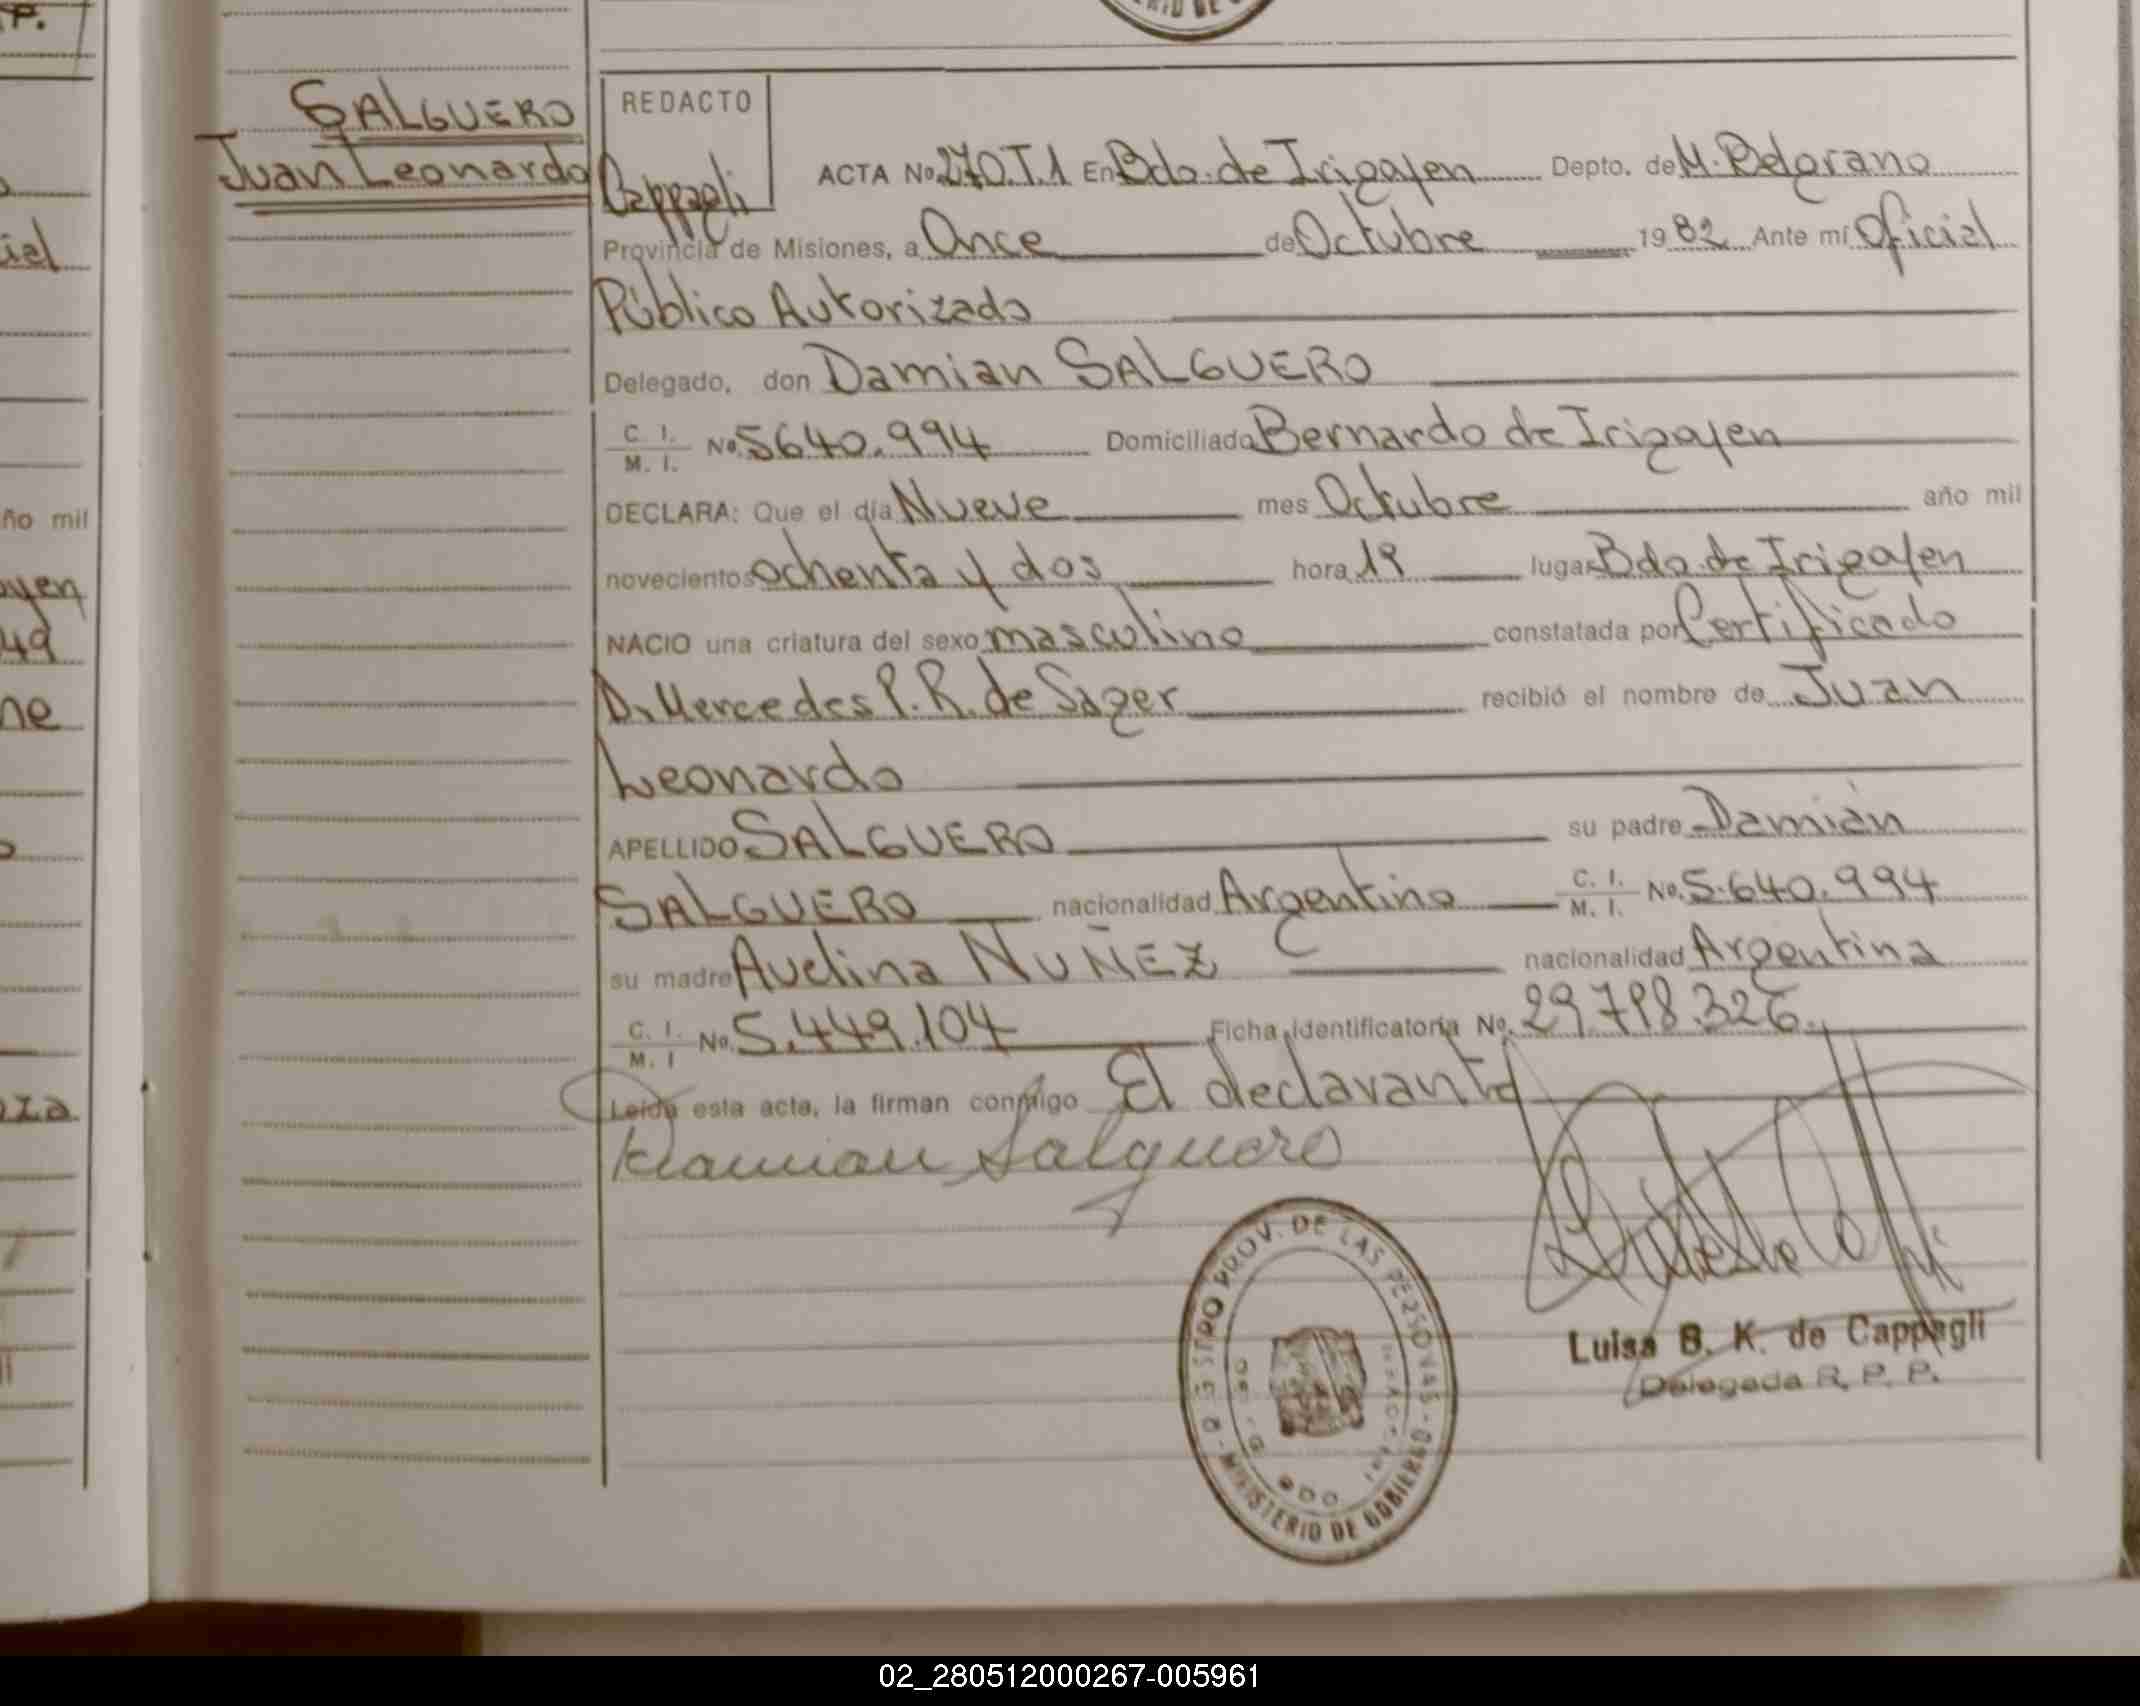 P.
SALGUERO
Juan Leonardo
REDACTO
Cappagli
ACTA No 270.T.1 En Bdo. de Irigoyen Depto. de M. Belgrano
Provincia de Misiones, a Once de Octubre 1982 Ante mi Oficial
Público Autorizado
Delegado, don Damian SALGUERO
C. I.
M. I. No 5640.994 Domiciliado Bernardo de Irigoyen
DECLARA: Que el día Nueve mes Octubre año mil
novecientos ochenta y dos hora 19 lugar Bdo. de Irigoyen
NACIO una criatura del sexo masculino constatada por Certificado
D. Mercedes P. R. de Sager recibió el nombre de Juan
Leonardo
APELLIDO SALGUERO su padre Damián
SALGUERO nacionalidad Argentino C. I. M. I. No. 5.640.994
su madre Avelina NUÑEZ nacionalidad Argentina
C. I.
M. I No. 5.449.104 Ficha identificatoria No. 29.798.326.
Leída esta acta, la firman conmigo El declarante
Damian Salguero
REGISTRO PROV. DE LAS PERSONAS
MINISTERIO DE GOBIERNO
Luisa B. K. de Cappagli
Delegada R. P. P.
ño mil
02_280512000267-005961